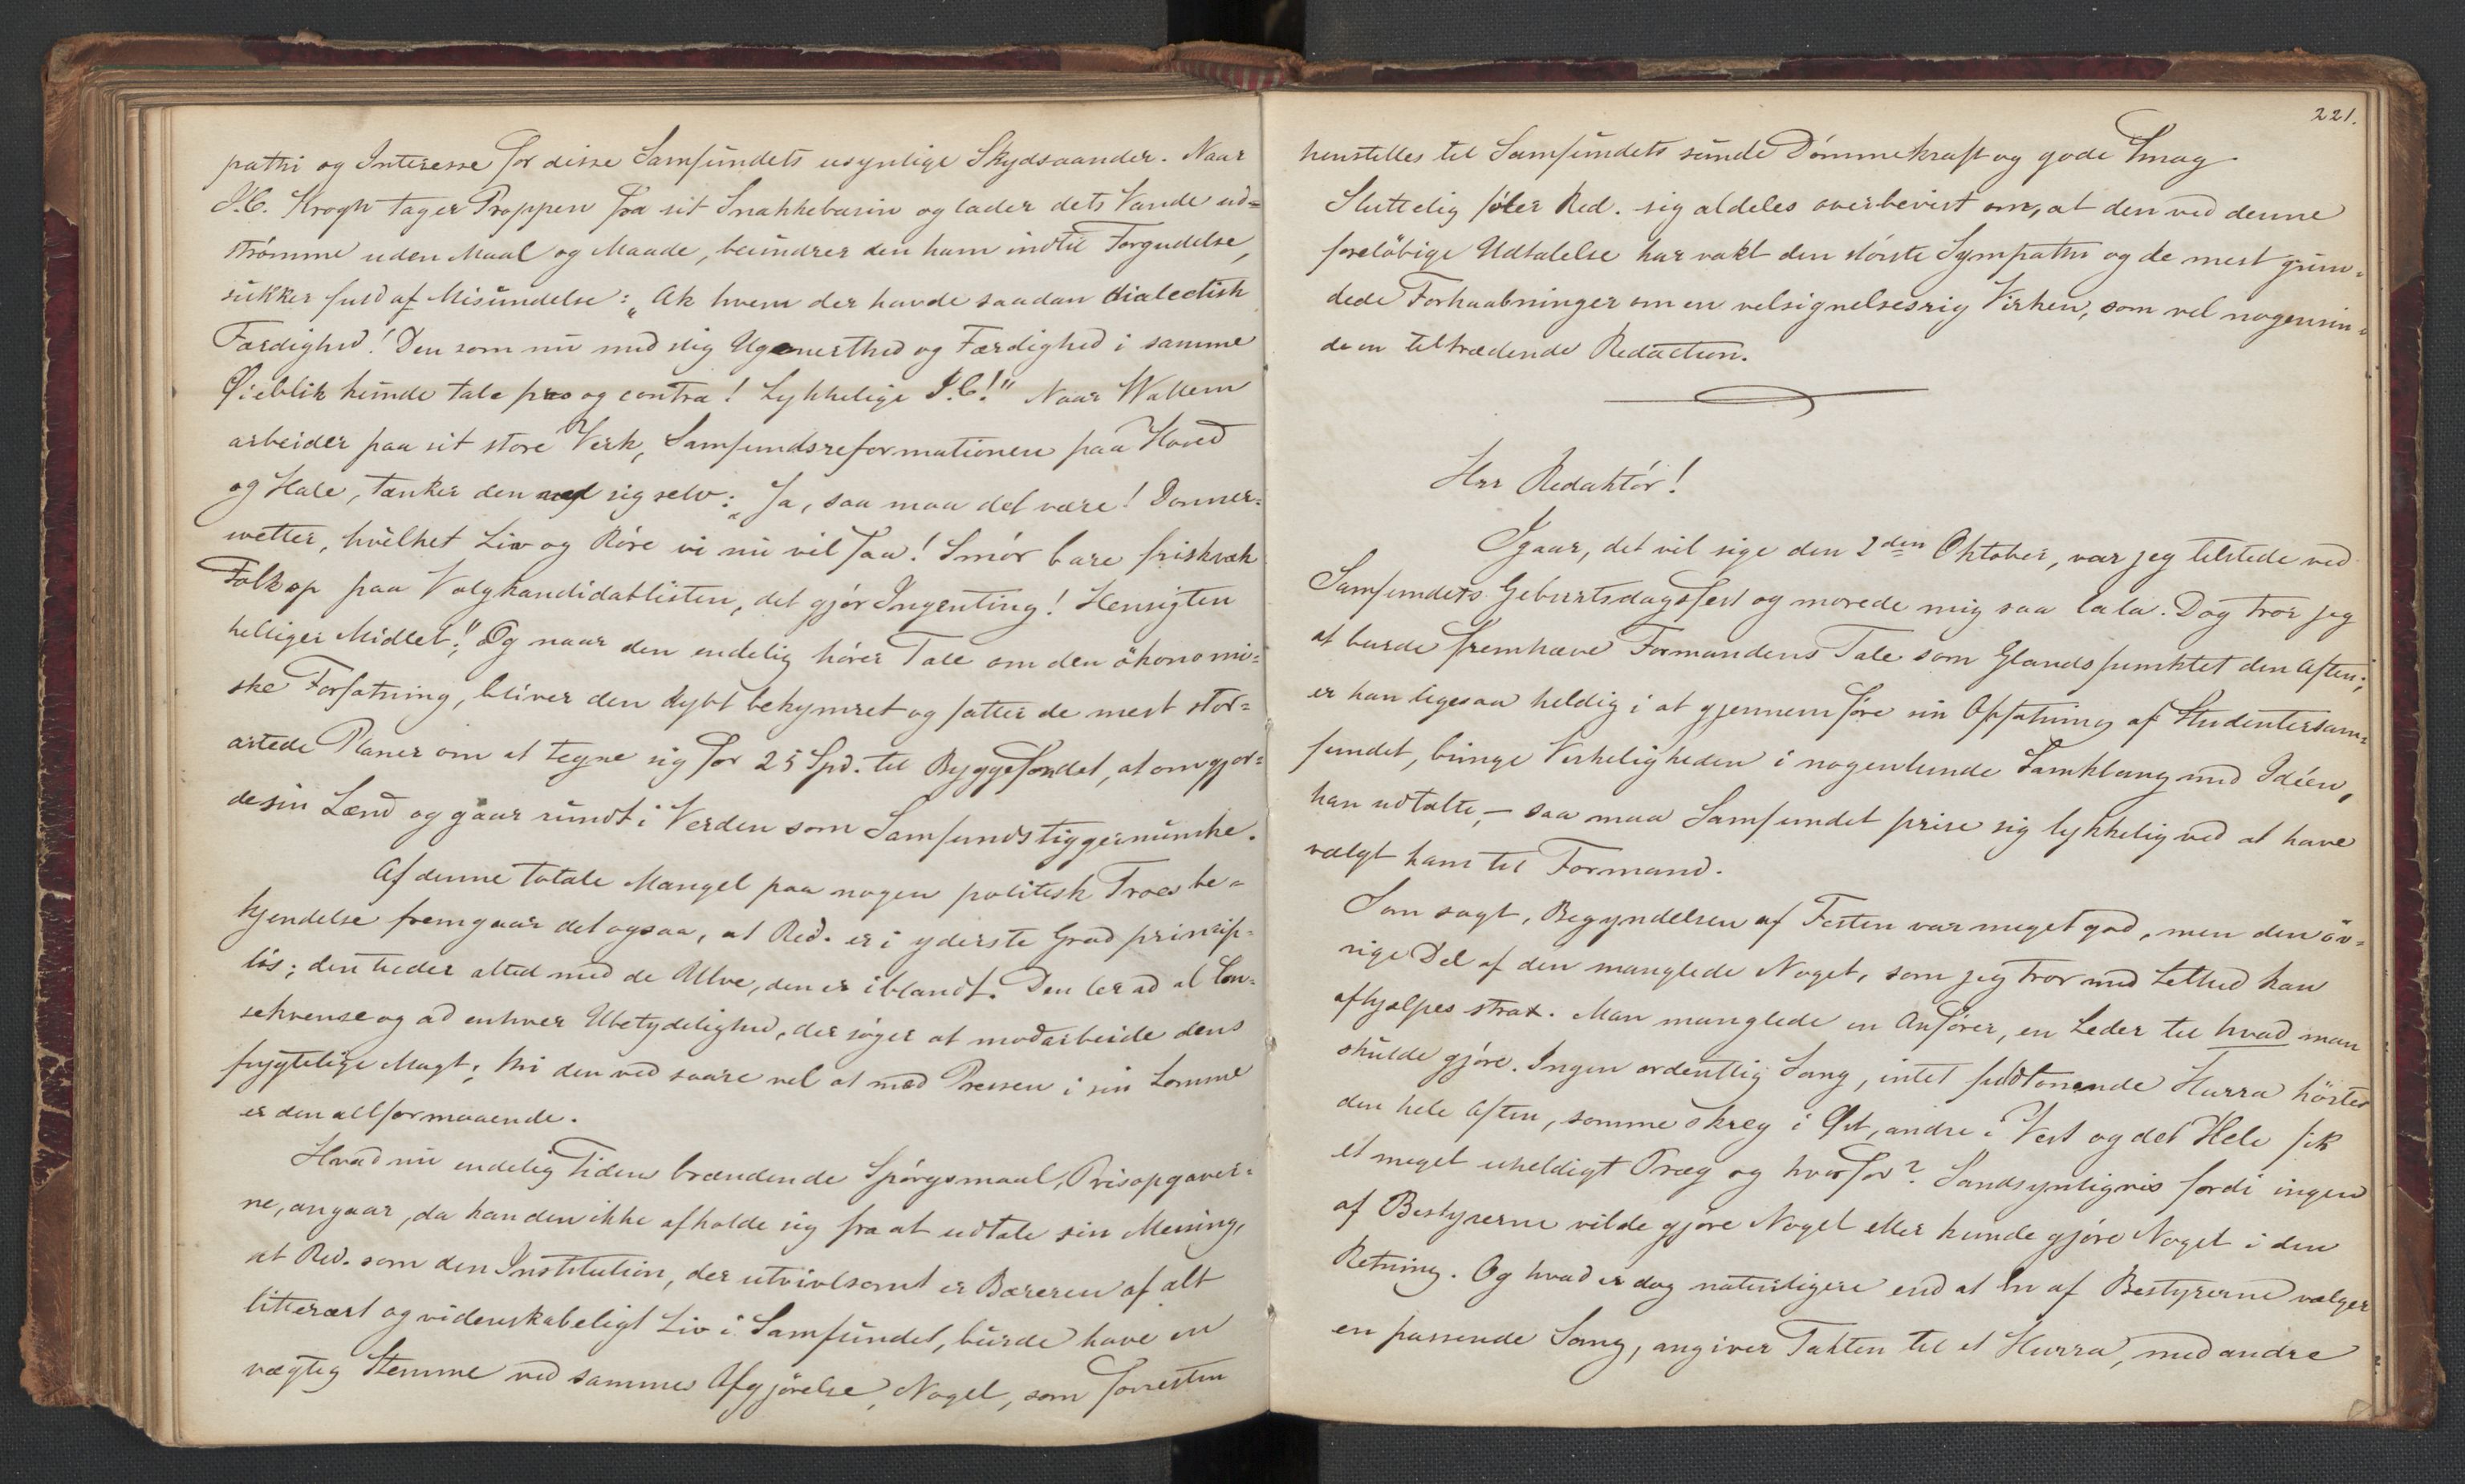 pathi og Interesse for disse Samfundets usynlige Skydsaander. Naar
J.C. Krogh tager Proppen fra sit Snakkebasin og lader dets Vande ud=
strømme uden Maal og Maade, beundrer den ham indtil Forgudelse,
sukker fuld af Misundelse: „Ak hvem der havde saadan dialectisk
Færdighed! Den som nu med slig Ugenerthed og Færdighed i samme
Øieblik kunde tale pro og contra! Lykkelige J.C!" Naar Wallem
arbeider paa sit store Verk, Samfundsreformationen paa Hoved
og Hale, tænker den ved sig selv: „Ja, saa maa det være! Donner=
wetter, hvilket Liv og Røre vi nu vil faa! Smør bare friskvæk
Folk op paa Valgkandidatlisten, det gjør Ingenting! Hensigten
helliger Midlet!" Og naar den endelig hører Tale om den økonomi=
ske Forfatning, bliver den dybt bekymret og fatter de mest stor=
artede Planer om at tegne sig for 25 Spd. til Byggefondet, at omgjor=
de sin Lænd og gaar rundt i Verden som Samfundstiggermunke.
Af denne totale Mangel paa nogen politisk Troesbe=
kjendelse fremgaar det ogsaa, at Red. er i yderste Grad prinsip=
løs; den tuder altid med de Ulve, den er iblandt. Den ler ad al Con=
sekvense og ad enhver Ubetydelighed, der søger at modarbeide dens
frygtelige Magt; thi den ved saare vel at med Pressen i sin Lomme
er den altformaaende.
Hvad nu endelig Tidens brændende Spørgsmaal, Prisopgaver=
ne, angaar, da kan den ikke afholde sig fra at udtale sin Mening,
at Red. som den Institution, der utvivlsomt er Bæreren af alt
litterært og videnskabeligt Liv i Samfundet, burde have en
vægtig Stemme ved sammes Afgjørelse, Noget, som forresten
221.
henstilles til Samfundets sunde Dømmekraft og gode Smag.
Sluttelig føler Red. sig aldeles overbevist om, at den ved denne
foreløbige Udtalelse har vakt den største Sympathi og de mest grun=
dede Forhaabninger om en velsignelsesrig Virken, som vel nogensin=
de en tiltrædende Redaction.
Herr Redaktør!
Igaar, det vil sige den 2den Oktober, var jeg tilstede ved
Samfundets Geburtsdagsfest og morede mig saa lala. Dog tror jeg
at burde fremhæve Formandens Tale som Glandspunktet den Aften;
er han ligesaa heldig i at gjennemføre sin Opfatning af Studentersam=
fundet, bringe Virkeligheden i nogenlunde Samklang med Idéen,
han udtalte, – saa maa Samfundet prise sig lykkelig ved at have
valgt ham til Formand.
Som sagt, Begyndelsen af Festen var meget god, men den øv=
rige Del af den manglede Noget, som jeg tror med Lethed kan
afhjælpes strax. Man manglede en Anfører, en Leder til hvad man
skulde gjøre. Ingen ordentlig Sang, intet fuldtonende Hurra hørtes
den hele Aften, somme skreg i Øst, andre i Vest og det Hele fik
et meget uheldigt Præg og hvorfor? Sandsynligvis fordi ingen
af Bestyrerne vilde gjøre Noget eller kunde gjøre Noget i den
Retning. Og hvad er dog naturligere end at En af Bestyrerne vælger
en passende Sang, angiver Takten til et Hurra, med andre